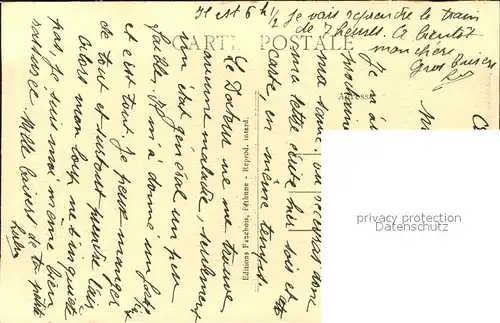 Il est 6 h 1/2 je vais reprendre le train
de 7 heures. A bientôt
ma chère
Gros baisers
CARTE POSTALE
Adresse
ma lettre écrite hier soir et
carte en même temps.
Le Docteur ne me trouve
aucune maladie, seulement
un état général un peu
faible, il m'a donné un forti
et c'est tout. Je peux manger
de tout et surtout prendre l'air
Alors mon loup ne t'inquiète
pas, je suis moi même bien
rassurée. Mille baisers de ta petite
Editions Fauchois, Béthune - Reprod. interd.
privacy protection
www.ansichtskarten-center.de